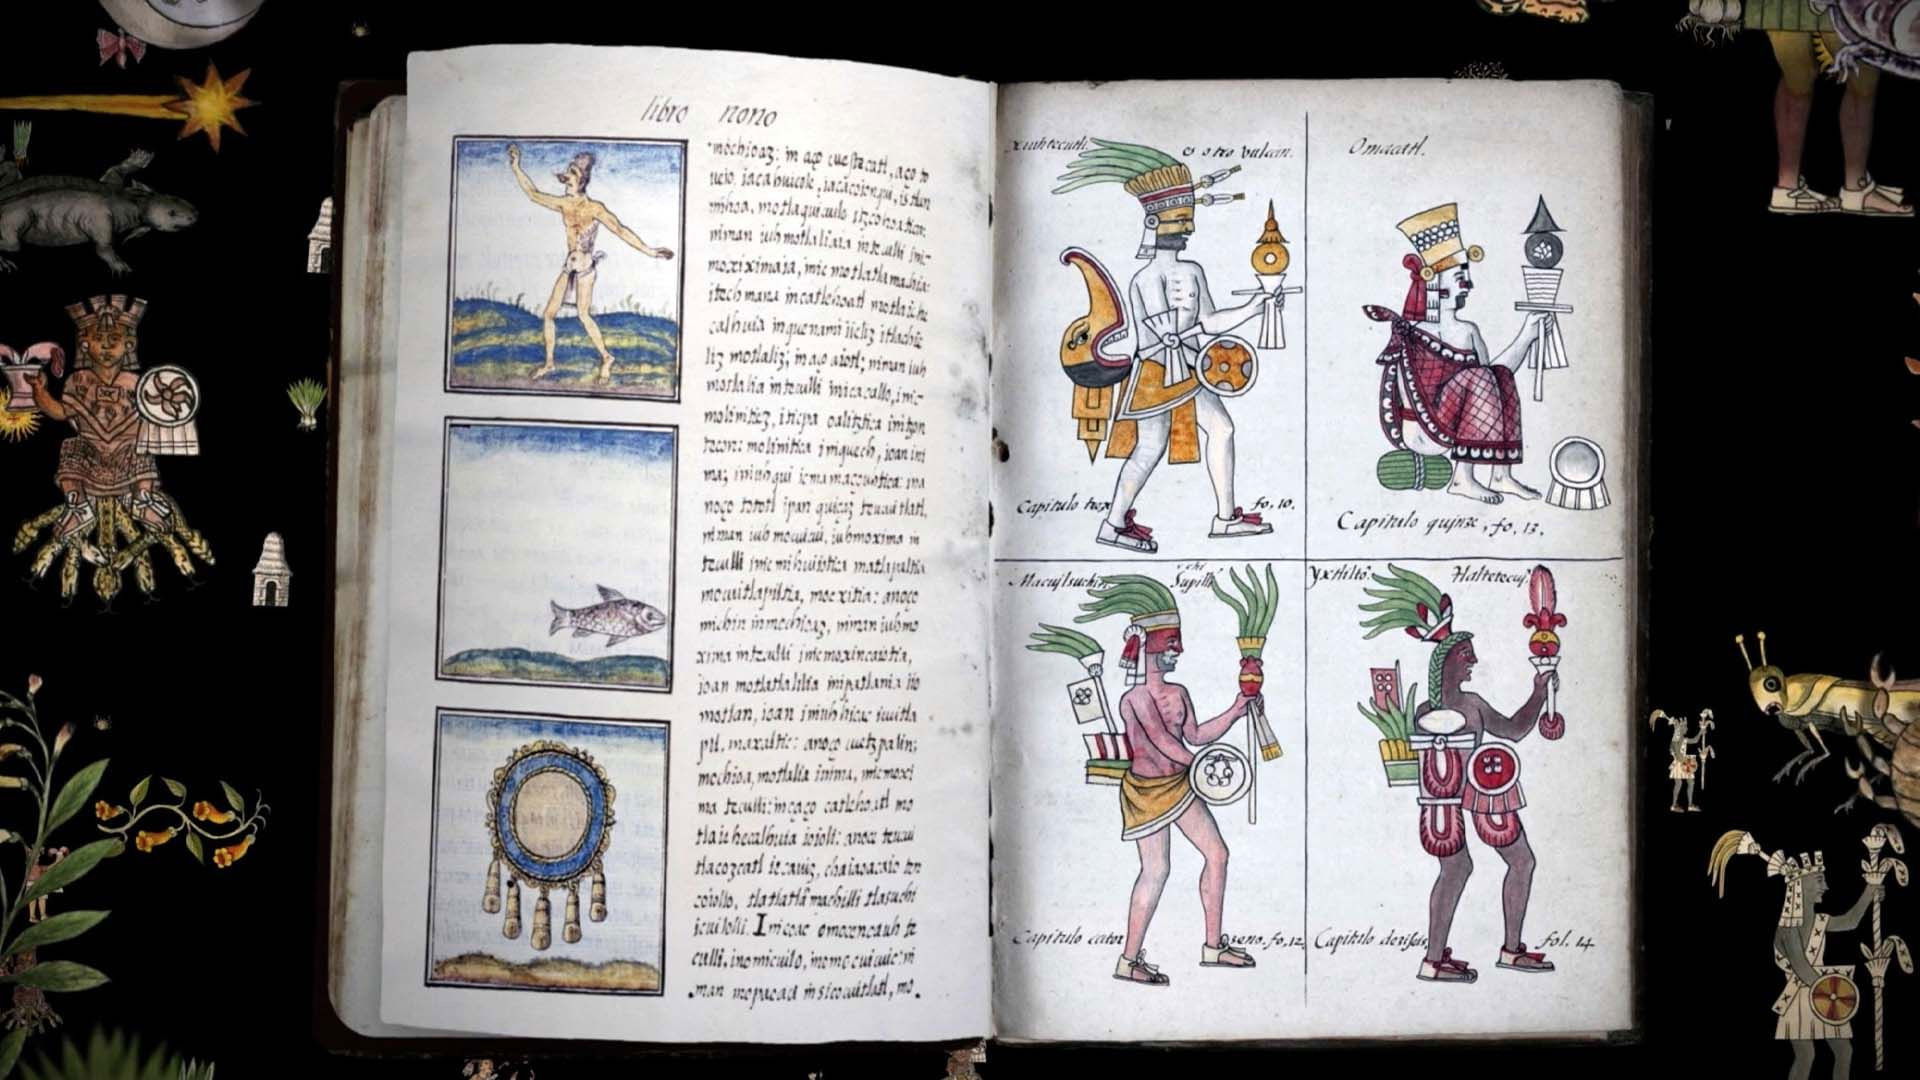 libro nono
mochioaz: in aço cuestecatl, aço to
ueio, iacahuicole, iacacoionqui, is tlan
mihoa, motlaquicuilo itzcohoatica:
niman iuh motlaliaia in teculli inic
moxiximaia, inic motlatlamachia:
itech mana in catlehoatl motlaiche
calhuia in quenami iieliz itlachie
liz motlaliz; in aço aiotl; niman iuh
motlalia in teculli inicacallo, inic
moliniticz, iticpa oalitztica initzon
tecon: molinitica iniquech, ioan ini
ma; iniuhqui ic mamaçouhtica: ina
noço tototl ipan quiçaz teucuitlatl,
niman iuh mocuicui, iuhmoxima in
teculli inic mihuiiotica matlapaltia
mocuitlapiltia, moexitia: anoço
michin inmochioaz, niman iuhmo
xima in teculli inic moxincaiotia,
ioan motlatlalilia inipatlania iio
motlan, ioan iniuh hicac icuitla
pil, maxaltic: anoço cuetzpalin;
mochioa, motlalia inima, inic moxi
ma teculli: inçaço catlehoatl mo
tlaiehecalhuia ioioli: anoce teucui
tlacozcatl iecauiz, chaiaoacaio ten
coiollo, tlatlatlamachilli tlasuchi
icuilolli. In icoac omocencauh te
culli, inomicuilo, inomocuicuic: ni
man mopaoaci in sicocuitlatl, mo.
xiuhtecutli. es otro bulcan.
Capitulo trez fo, 10.
Omacatl.
Capitulo quinze, fo, 13.
Macuilsuchitl chi Supilli
Capitulo cator zeno. fo, 12.
yxtlilto. tlaltetecuin.
Capitulo deziseis, fol. 14